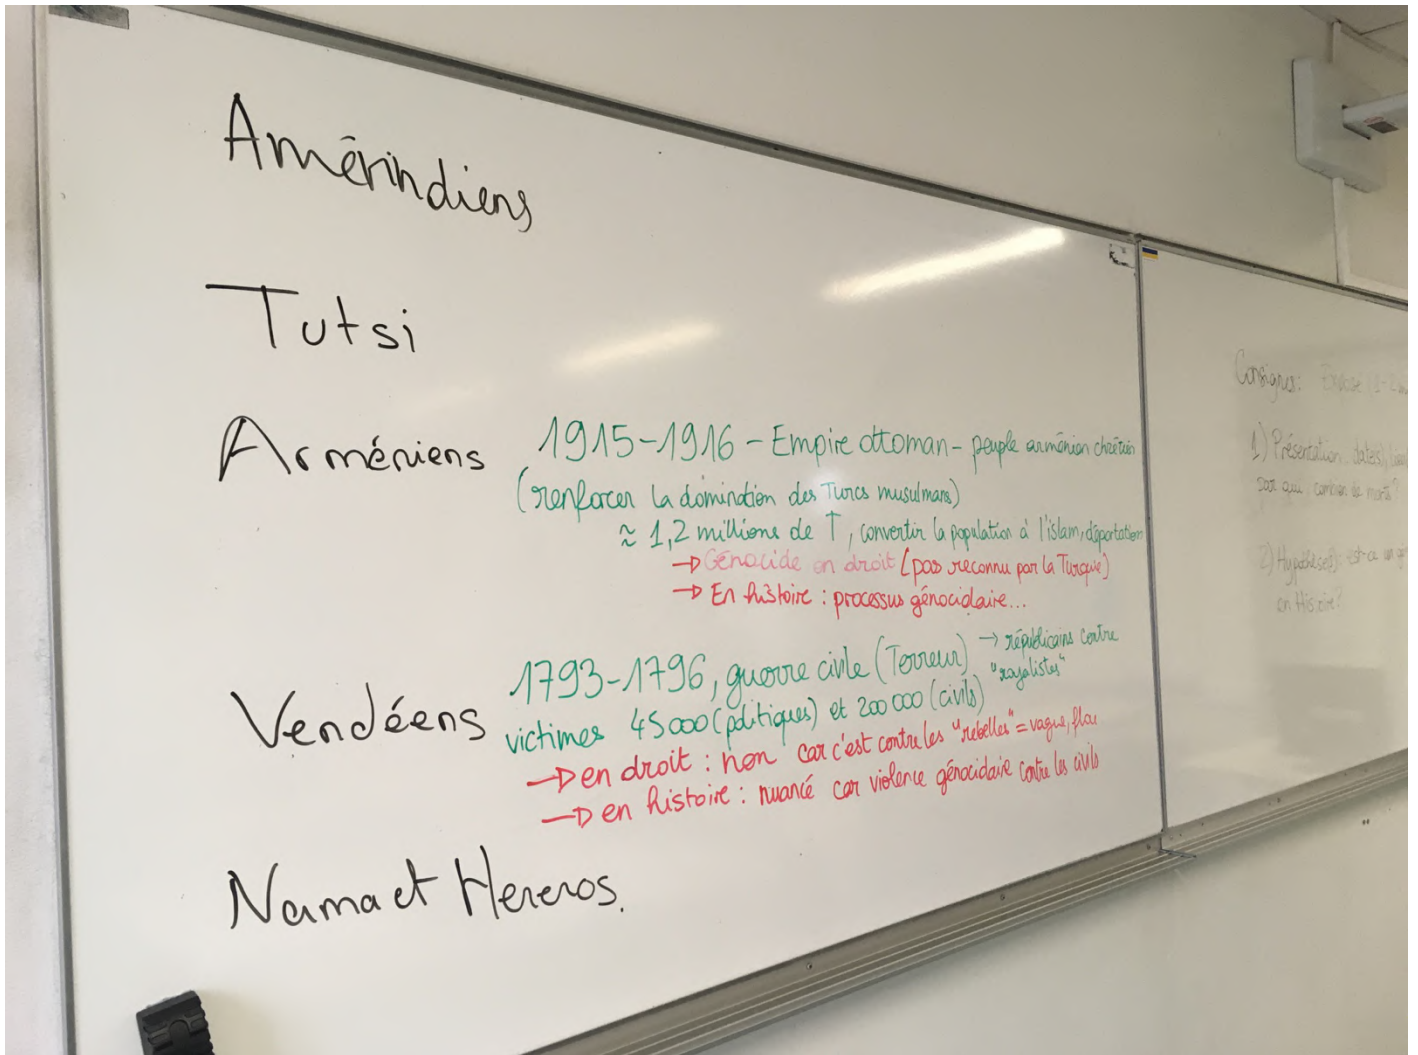 Amérindiens
Tutsi
Arméniens
1915-1916 - Empire ottoman - peuple arménien chrétien
(renforcer la domination des Turcs musulmans)
≈ 1,2 millions de †, convertir la population à l'islam, déportation
→ Génocide en droit (pas reconnu par la Turquie)
→ En histoire : processus génocidaire...
Vendéens
1793-1796, guerre civile (Terreur) → républicains contre
"royalistes"
victimes 45000 (politiques) et 200 000 (civils)
→ en droit : non car c'est contre les "rebelles" = vague, flou
→ en histoire : nuancé car violence génocidaire contre les civils
Nama et Hereros.
Consignes: Exposé (1-2
1) Présentation date(s), 
par qui, combien de morts?
2) Hypothèse(s): est-ce un
en Histoire?